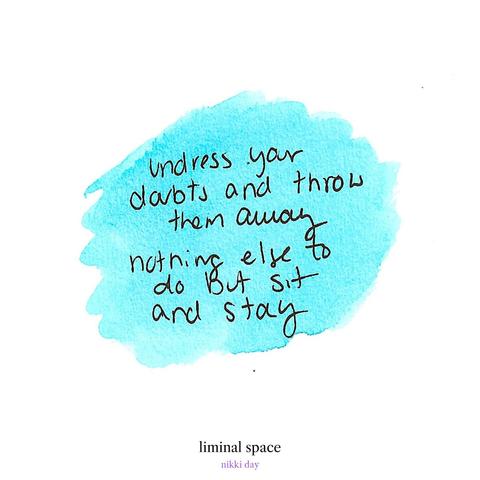 undress your
doubts and throw
them away
nothing else to
do But sit
and stay
liminal space
nikki day